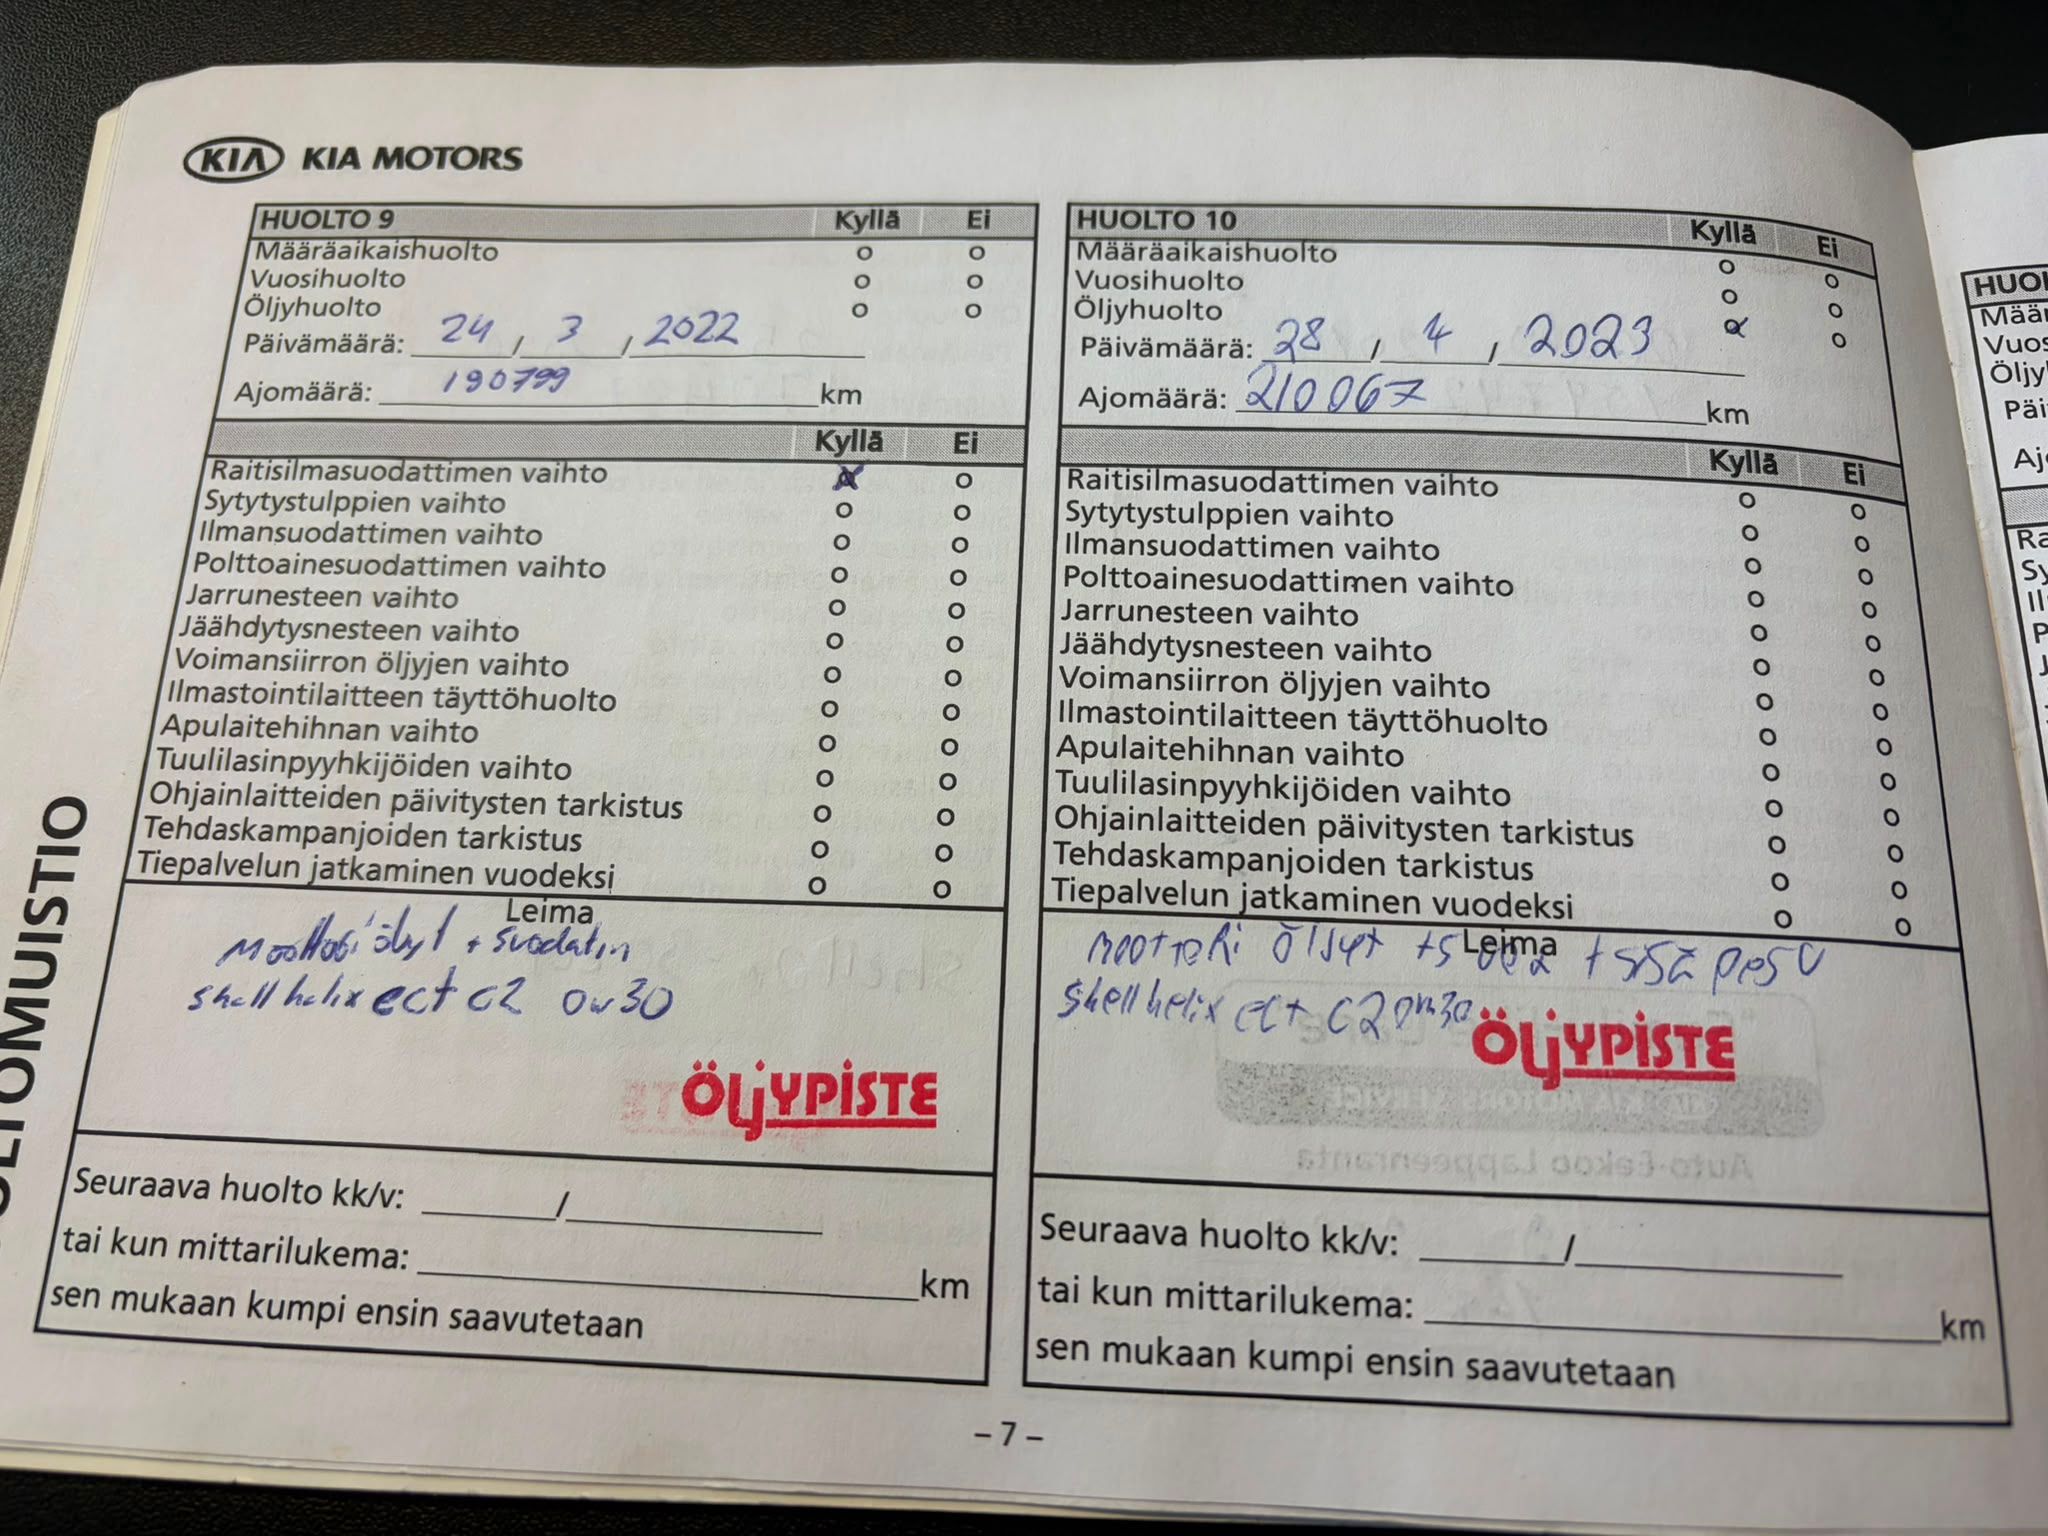 KIA KIA MOTORS
HUOLTO 9 Kyllä Ei
Määräaikaishuolto o o
Vuosihuolto o o
Öljyhuolto o o
Päivämäärä: 24 / 3 / 2022
Ajomäärä: 190799 km
Kyllä Ei
Raitisilmasuodattimen vaihto x o
Sytytystulppien vaihto o o
Ilmansuodattimen vaihto o o
Polttoainesuodattimen vaihto o o
Jarrunesteen vaihto o o
Jäähdytysnesteen vaihto o o
Voimansiirron öljyjen vaihto o o
Ilmastointilaitteen täyttöhuolto o o
Apulaitehihnan vaihto o o
Tuulilasinpyyhkijöiden vaihto o o
Ohjainlaitteiden päivitysten tarkistus o o
Tehdaskampanjoiden tarkistus o o
Tiepalvelun jatkaminen vuodeksi o o
Leima
+ suodatin
shell helix ect c2 0w30
ÖLjYPiSTE
Seuraava huolto kk/v: /
tai kun mittarilukema: km
sen mukaan kumpi ensin saavutetaan
HUOLTO 10 Kyllä Ei
Määräaikaishuolto o o
Vuosihuolto o o
Öljyhuolto x o
Päivämäärä: 28 / 4 / 2023
Ajomäärä: 210067 km
Kyllä Ei
Raitisilmasuodattimen vaihto o o
Sytytystulppien vaihto o o
Ilmansuodattimen vaihto o o
Polttoainesuodattimen vaihto o o
Jarrunesteen vaihto o o
Jäähdytysnesteen vaihto o o
Voimansiirron öljyjen vaihto o o
Ilmastointilaitteen täyttöhuolto o o
Apulaitehihnan vaihto o o
Tuulilasinpyyhkijöiden vaihto o o
Ohjainlaitteiden päivitysten tarkistus o o
Tehdaskampanjoiden tarkistus o o
Tiepalvelun jatkaminen vuodeksi o o
Leima
+ sisä pesu
shell helix ect C2 0w30
ÖLjYPiSTE
Seuraava huolto kk/v: /
tai kun mittarilukema: km
sen mukaan kumpi ensin saavutetaan
– 7 –